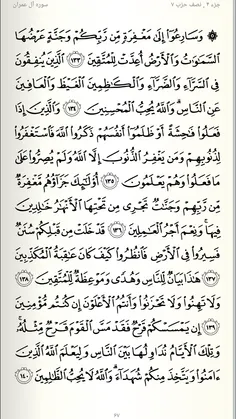 جزء ٤ , نصف حزب ٧
سورة آل عمران
۞ وَسَارِعُوٓا۟ إِلَىٰ مَغْفِرَةٍ مِّن رَّبِّكُمْ وَجَنَّةٍ عَرْضُهَا
ٱلسَّمَـٰوَٰتُ وَٱلْأَرْضُ أُعِدَّتْ لِلْمُتَّقِينَ ١٣٣ ٱلَّذِينَ يُنفِقُونَ
فِى ٱلسَّرَّآءِ وَٱلضَّرَّآءِ وَٱلْكَـٰظِمِينَ ٱلْغَيْظَ وَٱلْعَافِينَ
عَنِ ٱلنَّاسِ ۗ وَٱللَّهُ يُحِبُّ ٱلْمُحْسِنِينَ ١٣٤ وَٱلَّذِينَ إِذَا
فَعَلُوا۟ فَـٰحِشَةً أَوْ ظَلَمُوٓا۟ أَنفُسَهُمْ ذَكَرُوا۟ ٱللَّهَ فَٱسْتَغْفَرُوا۟
لِذُنُوبِهِمْ وَمَن يَغْفِرُ ٱلذُّنُوبَ إِلَّا ٱللَّهُ وَلَمْ يُصِرُّوا۟ عَلَىٰ
مَا فَعَلُوا۟ وَهُمْ يَعْلَمُونَ ١٣٥ أُو۟لَـٰٓئِكَ جَزَآؤُهُم مَّغْفِرَةٌ
مِّن رَّبِّهِمْ وَجَنَّـٰتٌ تَجْرِى مِن تَحْتِهَا ٱلْأَنْهَـٰرُ خَـٰلِدِينَ
فِيهَا ۚ وَنِعْمَ أَجْرُ ٱلْعَـٰمِلِينَ ١٣٦ قَدْ خَلَتْ مِن قَبْلِكُمْ سُنَنٌ
فَسِيرُوا۟ فِى ٱلْأَرْضِ فَٱنظُرُوا۟ كَيْفَ كَانَ عَـٰقِبَةُ ٱلْمُكَذِّبِينَ
١٣٧ هَـٰذَا بَيَانٌ لِّلنَّاسِ وَهُدًى وَمَوْعِظَةٌ لِّلْمُتَّقِينَ ١٣٨
وَلَا تَهِنُوا۟ وَلَا تَحْزَنُوا۟ وَأَنتُمُ ٱلْأَعْلَوْنَ إِن كُنتُم مُّؤْمِنِينَ
١٣٩ إِن يَمْسَسْكُمْ قَرْحٌ فَقَدْ مَسَّ ٱلْقَوْمَ قَرْحٌ مِّثْلُهُۥ ۚ
وَتِلْكَ ٱلْأَيَّامُ نُدَاوِلُهَا بَيْنَ ٱلنَّاسِ وَلِيَعْلَمَ ٱللَّهُ ٱلَّذِينَ
ءَامَنُوا۟ وَيَتَّخِذَ مِنكُمْ شُهَدَآءَ ۗ وَٱللَّهُ لَا يُحِبُّ ٱلظَّـٰلِمِينَ ١٤٠
٦٧